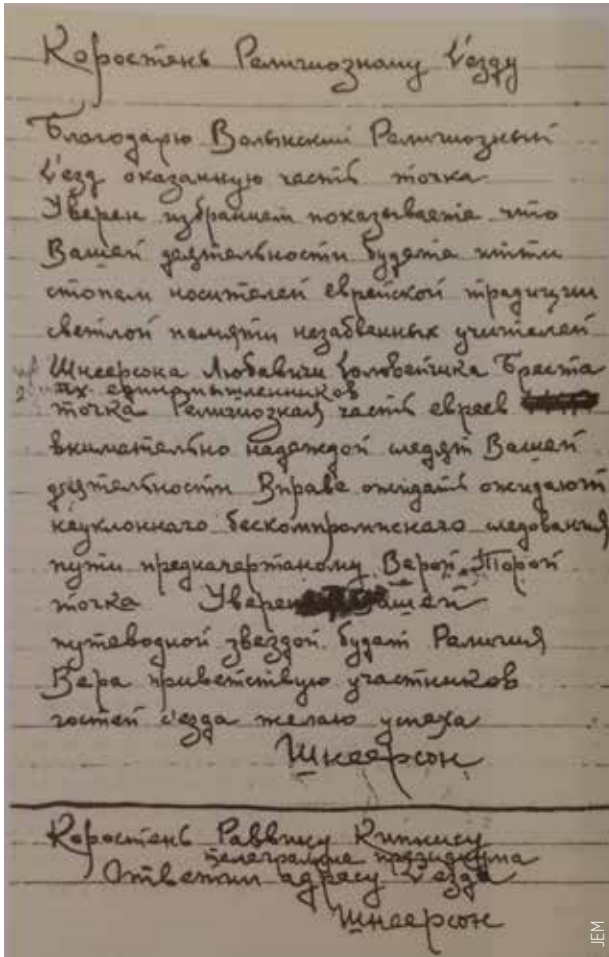 Коростень Религиозному С'езду
Благодарю Волынский Религиозный
С'езд оказанную честь точка
Уверен избранием показываете что
Вашей деятельности будете итти
стопам носителей еврейской традиции
светлой памяти незабвенных учителей
Шнеерсона Любавичи Соловейчика Бреста
их единомышленников
точка Религиозная часть евреев
внимательно надеждой следят Вашей
деятельности Вправе ожидать ожидают
неуклоннаго бескомпромиснаго следования
пути предначертаному Верой Торой
точка Уверен Вашей
путеводной звездой будет Религия
Вера приветствую участников
гостей с'езда желаю успеха
Шнеерсон
Коростень Раввину Кипнису
телеграмме президиума
Ответил адресу С'езда
Шнеерсон
JEM